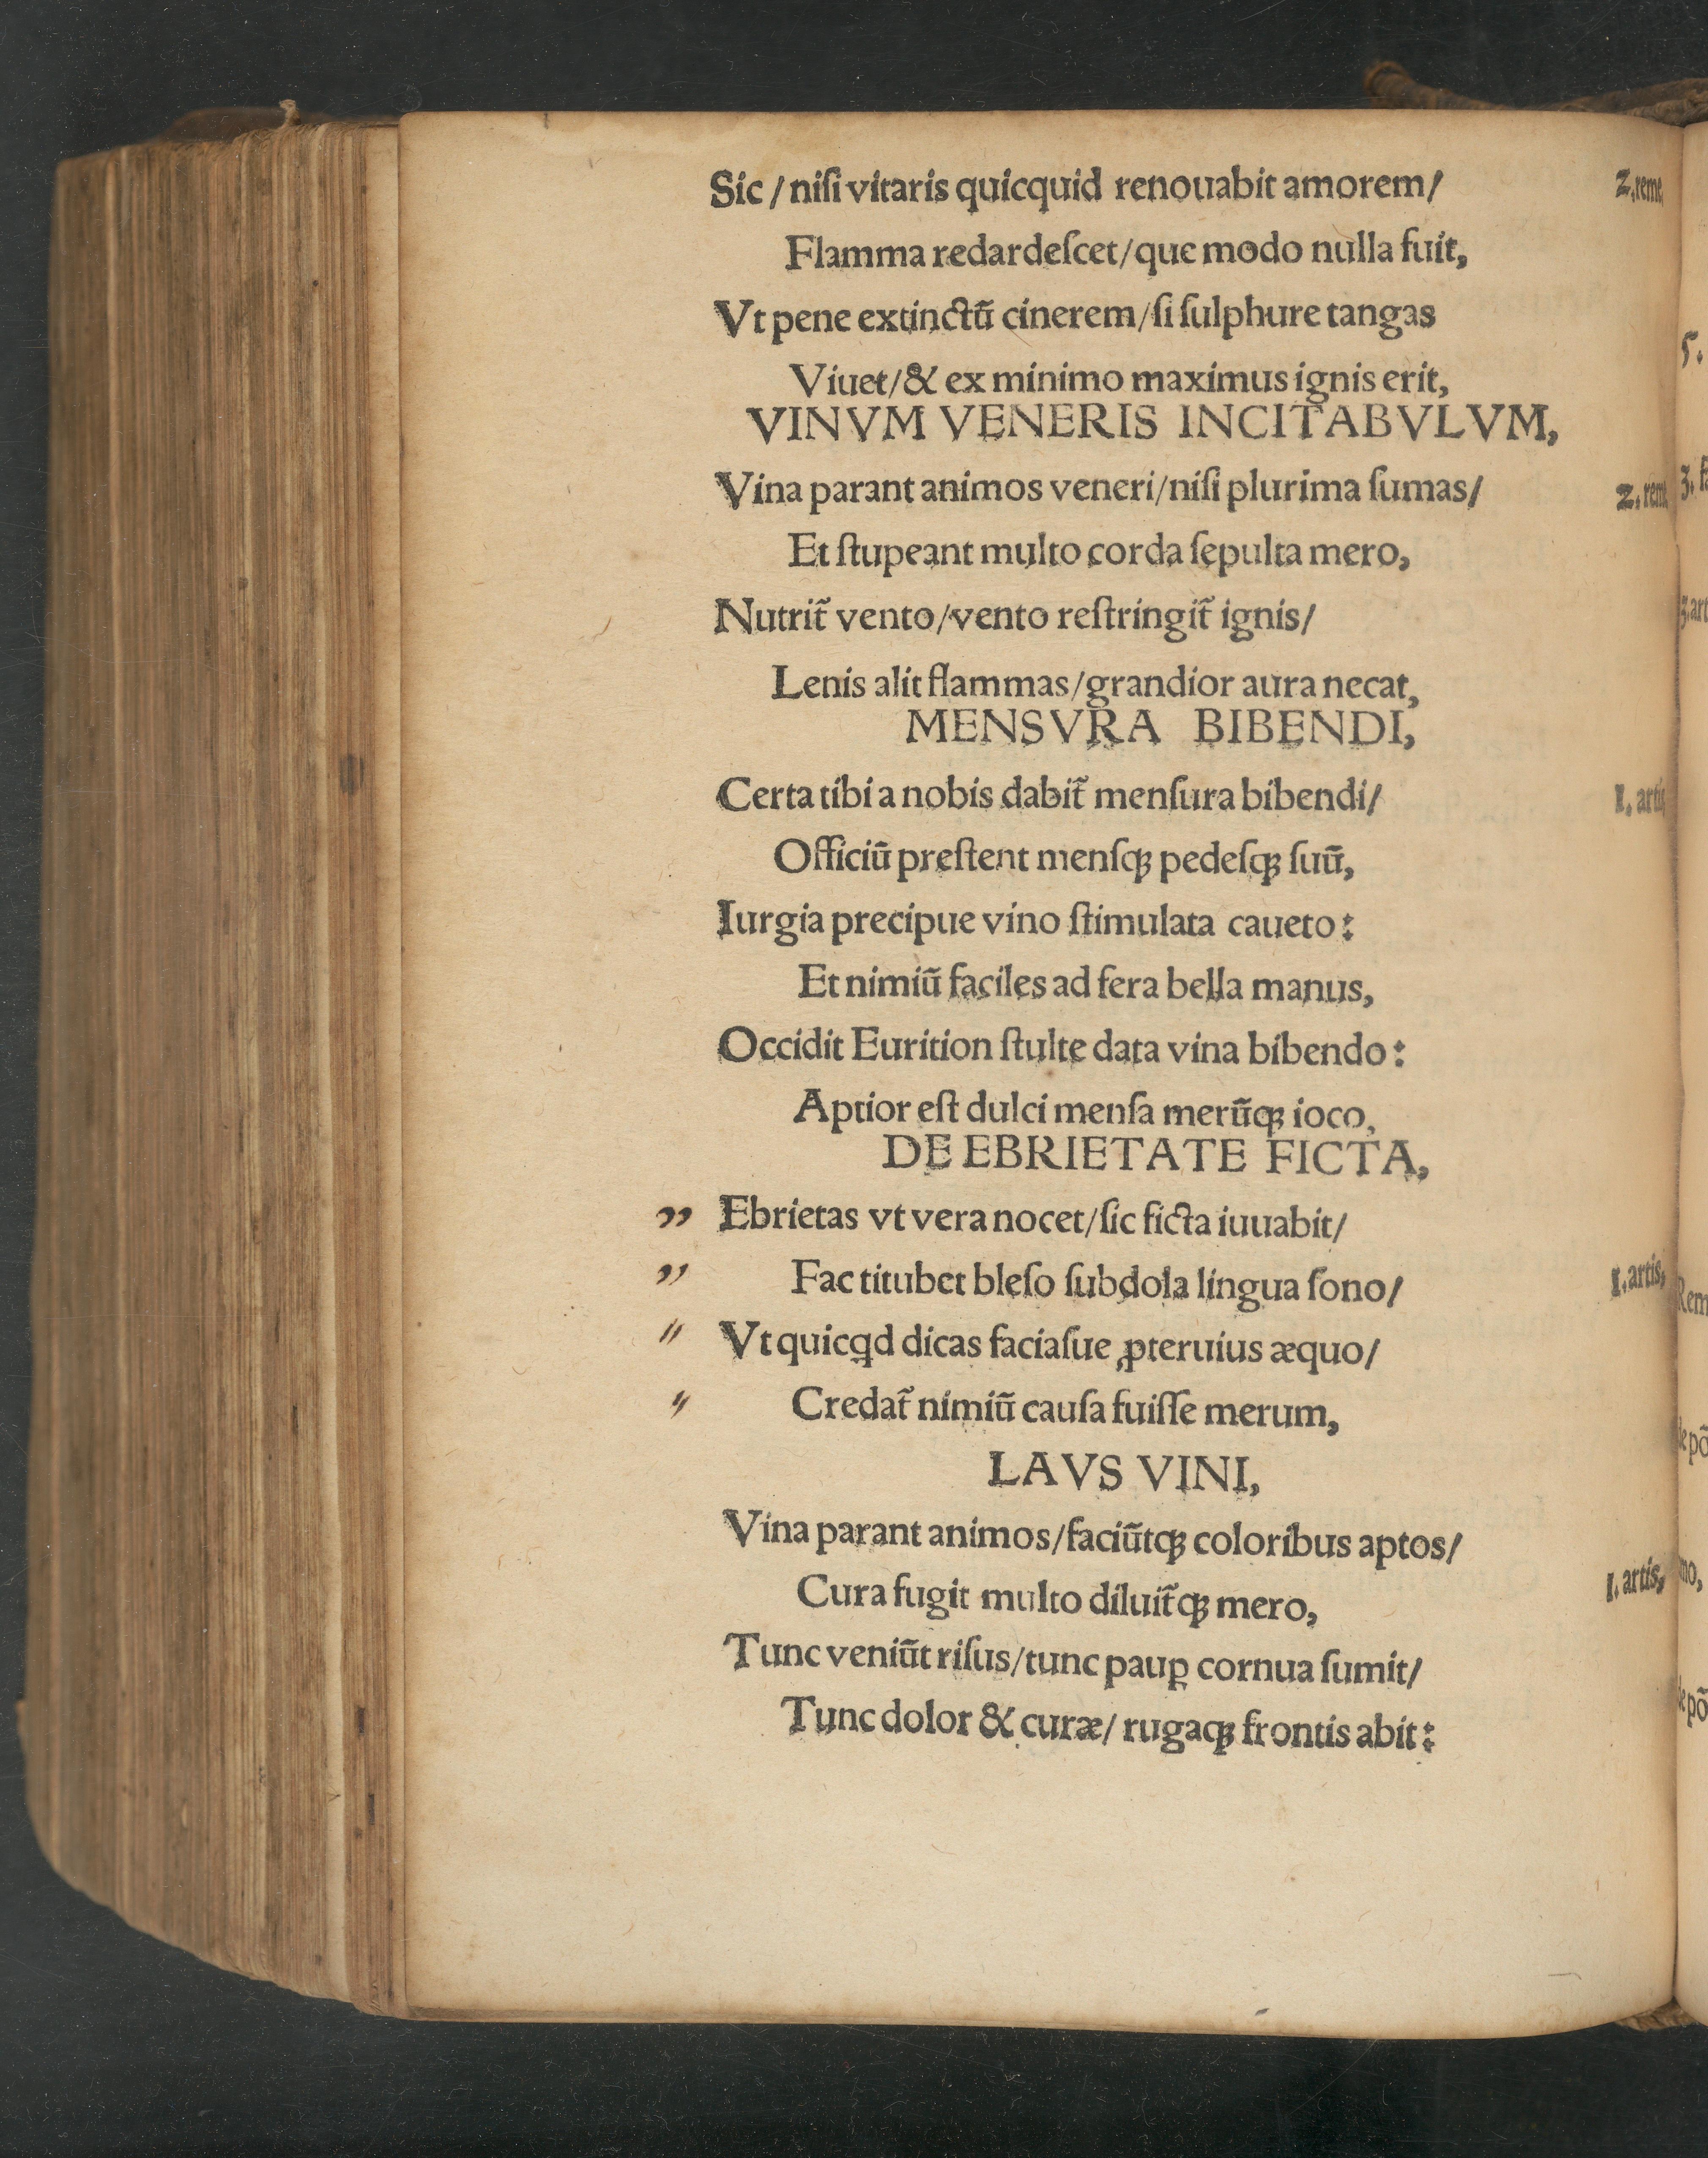 Sic / niſi vitaris quicquid renouabit amorem/ 2.reme
Flamma redardeſcet/que modo nulla fuit,
Vt pene extinctũ cinerem/ſi ſulphure tangas
Viuet/& ex minimo maximus ignis erit,
VINVM VENERIS INCITABVLVM,
Vina parant animos veneri/niſi plurima ſumas/ 2.reme
Et ſtupeant multo corda ſepulta mero,
Nutrit᷑ vento/vento reſtringit᷑ ignis/
Lenis alit flammas/grandior aura necat,
MENSVRA BIBENDI,
Certa tibi a nobis dabit᷑ menſura bibendi/ 1. artis
Officiũ preſtent menſqꝫ pedeſqꝫ ſuũ,
Iurgia precipue vino ſtimulata caueto:
Et nimiũ faciles ad fera bella manus,
Occidit Eurition ſtulte data vina bibendo:
Aptior eſt dulci menſa merũqꝫ ioco,
DE EBRIETATE FICTA,
„ Ebrietas vt vera nocet/ſic ficta iuuabit/ 1.artis,
„ Fac titubet bleſo ſubdola lingua ſono/
„ Vt quicqd dicas faciaſue ꝓteruius æquo/
„ Credat᷑ nimiũ cauſa fuiſſe merum,
LAVS VINI,
Vina parant animos/faciũtqꝫ coloribus aptos/ 1. artis,
Cura fugit multo diluit᷑qꝫ mero,
Tunc veniũt riſus/tunc pauꝑ cornua ſumit/
Tunc dolor & curæ/ rugaqꝫ frontis abit: